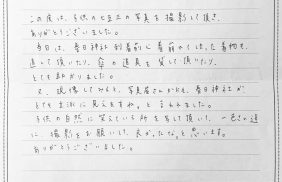 この度は、子供の七五三の写真を撮影して頂き、
ありがとうございました。
当日は、春日神社到着前に着崩れていた着物を
直して頂いたり、傘の道具を貸して頂いたり、
とても助かりました。
又、現像してみると、写真屋さんからも、春日神社が
とても立派に見えますね。と言われました。
子供の自然に笑えている所を写して頂いて、
に、撮影をお願いして、良かったな。と思います。
ありがとうございました。